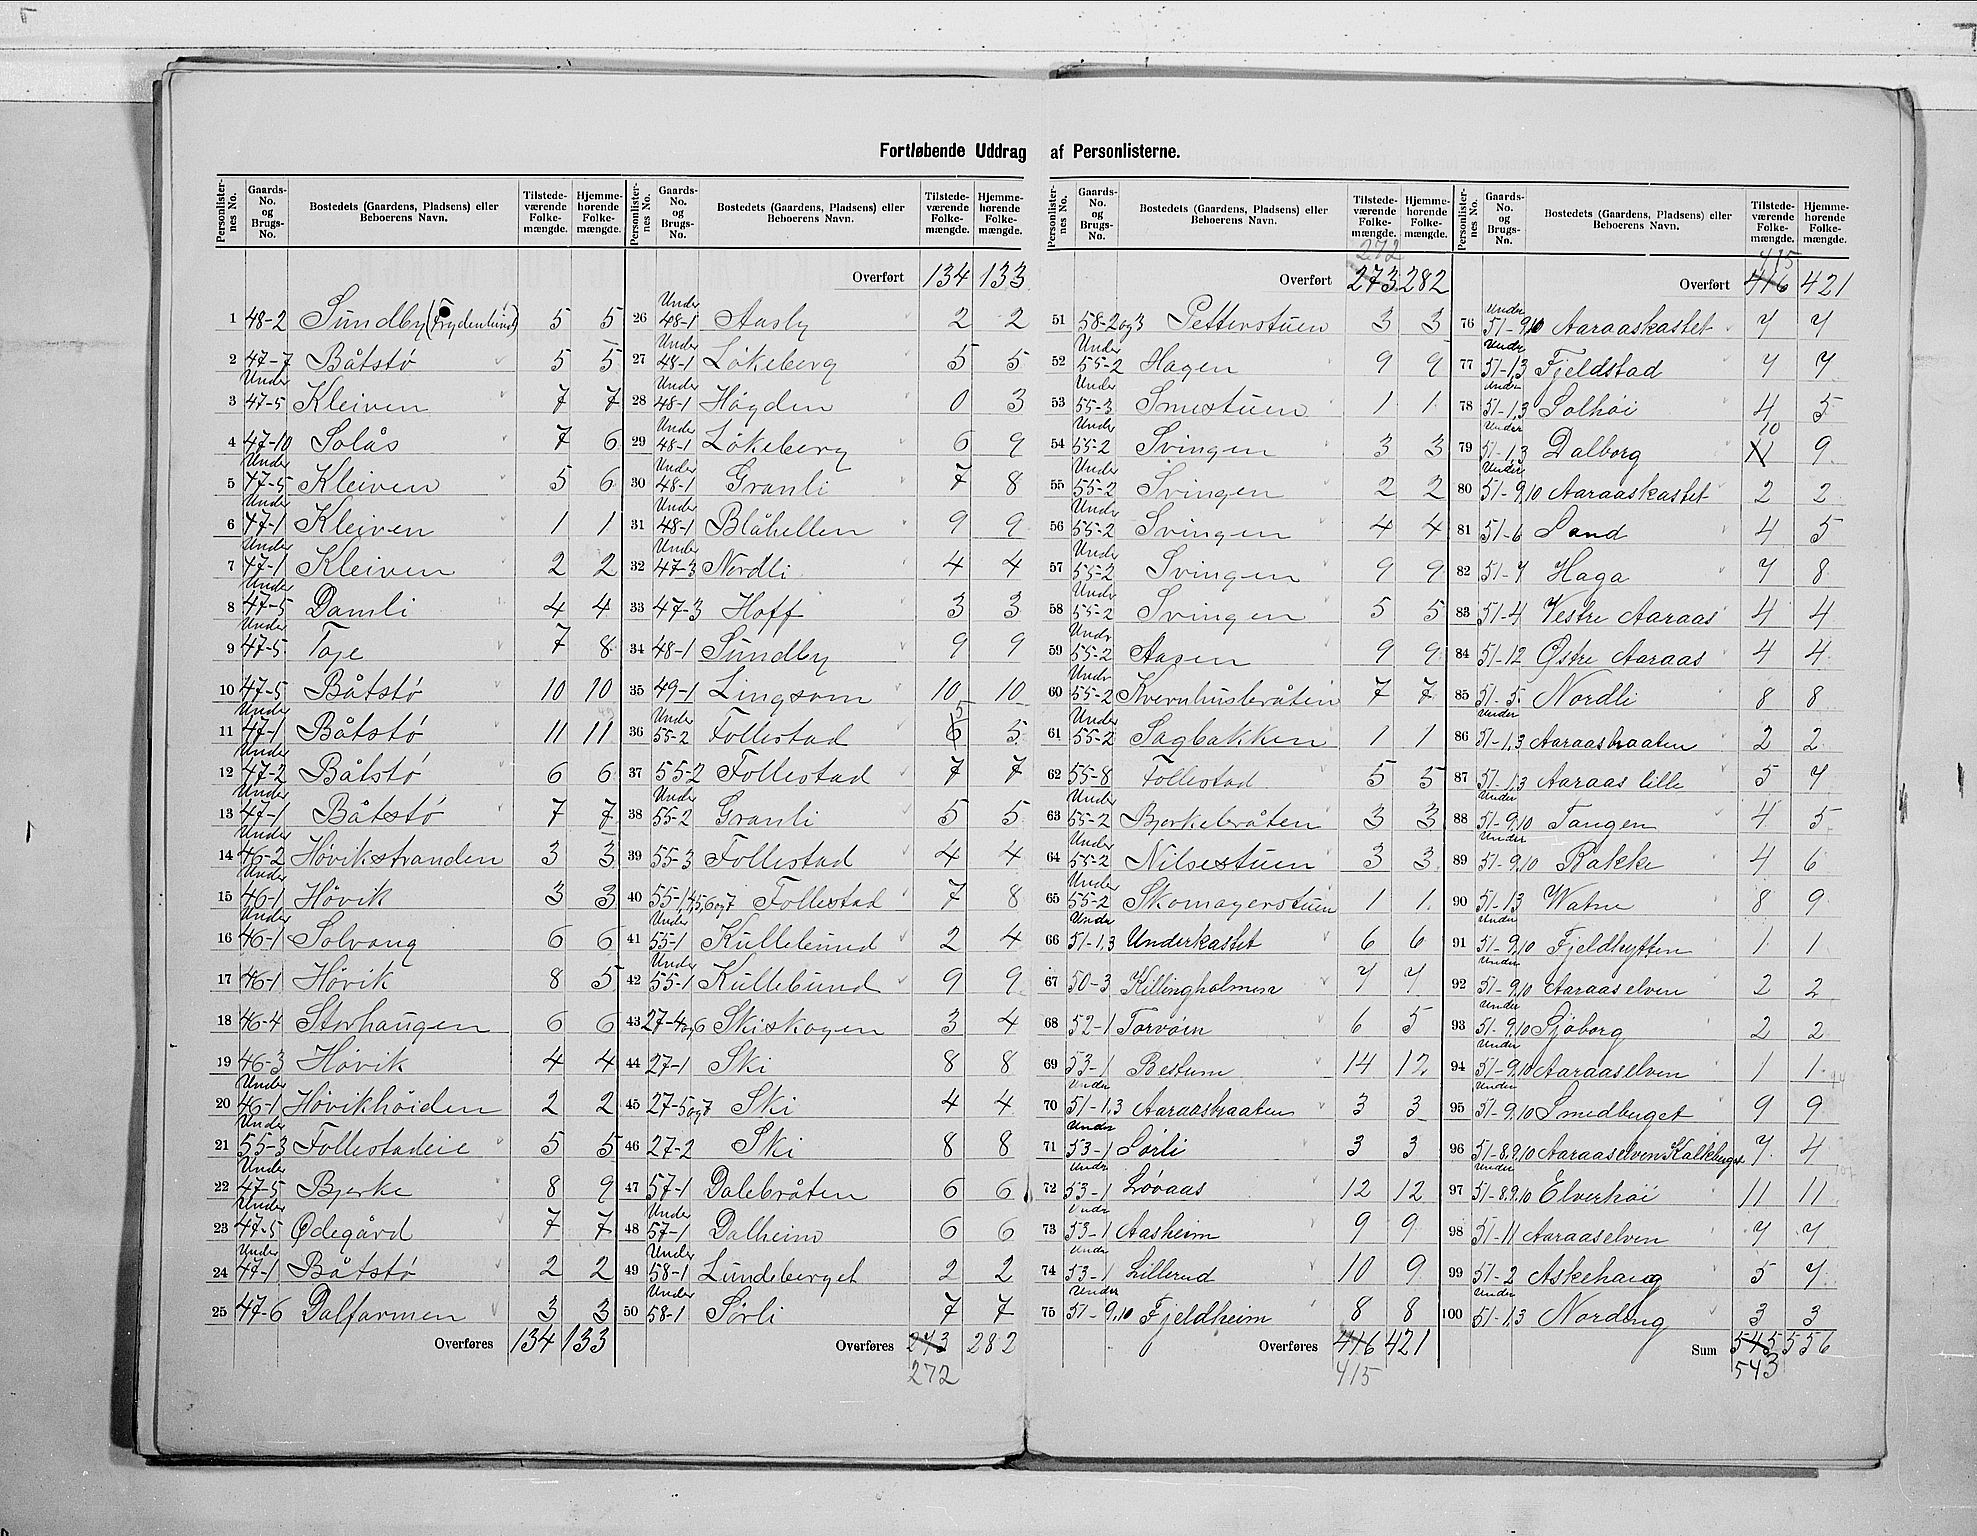 Fortløbende Uddrag af Personlisterne.
Personlisternes No. Gaards-No. og Brugs-No. Bostedets (Gaardens, Pladsens) eller Beboerens Navn. Tilstedeværende Folkemængde. Hjemmehørende Folkemængde.
1 48-2 Sundby (Frydenlund) 5 5
2 47-7 Båtstø 5 5
3 Under 47-5 Kleiven 7 7
4 47-10 Solås 7 6
5 Under 47-5 Kleiven 5 6
6 Under 47-1 Kleiven 1 1
7 Under 47-1 Kleiven 2 2
8 Under 47-5 Damli 4 4
9 Under 47-5 Toje 7 8
10 47-5 Båtstø 10 10
11 Under 47-1 Båtstø 11 11
12 Under 47-2 Båtstø 6 6
13 Under 47-1 Båtstø 7 7
14 Under 46-2 Høvikstranden 3 3
15 Under 46-1 Høvik 3 3
16 Under 46-1 Solvang 6 6
17 46-1 Høvik 8 5
18 46-4 Storhaugen 6 6
19 46-3 Høvik 4 4
20 Under 46-1 Høvikhöiden 2 2
21 Under 55-3 Follestadeie 5 5
22 Under 47-5 Bjerke 8 9
23 Under 47-5 Ødegård 7 7
24 Under 47-1 Båtstø 2 2
25 47-6 Dalfarmen 3 3
Overføres 134 133
Personlisternes No. Gaards-No. og Brugs-No. Bostedets (Gaardens, Pladsens) eller Beboerens Navn. Tilstedeværende Folkemængde. Hjemmehørende Folkemængde.
Overført 134 133
26 Under 48-1 Aasly 2 2
27 Under 48-1 Lökeberg 5 5
28 Under 48-1 Högden 0 3
29 Under 48-1 Lökeberg 6 9
30 Under 48-1 Granli 7 8
31 Under 48-1 Blåhellen 9 9
32 Under 47-3 Nordli 4 4
33 47-3 Hoff 3 3
34 48-1 Sundby 9 9
35 49-1 Lingsom 10 10
36 Under 55-2 Follestad 6 5 5
37 55-2 Follestad 7 7
38 Under 55-2 Granli 5 5
39 55-3 Follestad 4 4
40 55-1,4,5,6og7 Follestad 7 8
41 Under 55-1 Kullebund 2 4
42 Under 55-1 Kullebund 9 9
43 27-4og6 Skiskogen 3 4
44 27-1 Ski 8 8
45 27-5og7 Ski 4 4
46 27-2 Ski 8 8
47 57-1 Dalebråten 6 6
48 Under 57-1 Dalheim 6 6
49 Under 58-1 Lundeberget 2 2
50 Under 58-1 Sørli 7 7
Overføres 273 282
272
Personlisternes No. Gaards-No. og Brugs-No. Bostedets (Gaardens, Pladsens) eller Beboerens Navn. Tilstedeværende Folkemængde. Hjemmehørende Folkemængde.
272
Overført 273 282
51 58-2og3 Petterstuen 3 3
52 Under 55-2 Hagen 9 9
53 Under 55-3 Smestuen 1 1
54 Under 55-2 Svingen 3 3
55 Under 55-2 Svingen 2 2
56 Undr 55-2 Svingen 4 4
57 Under 55-2 Svingen 9 9
58 Undr 55-2 Svingen 5 5
59 Undr 55-2 Aasen 9 9
60 Undr 55-2 Kvernhusbråten 7 7
61 Under 55-2 Sagbakken 1 1
62 55-8 Follestad 5 5
63 Under 55-2 Bjerkebråten 3 3
64 Under 55-2 Nilsestuen 3 3
65 Under 55-2 Skomagerstuen 1 1
66 Under 51-1,3 Underkastet 6 6
67 50-3 Killingholmen 7 7
68 52-1 Torvöen 6 5
69 53-1 Bestum 14 12
70 Under 51-1,3 Aaraasbraaten 3 3
71 Under 53-1 Sørli 3 3
72 Under 53-1 Løvaas 12 12
73 Undr 53-1 Aasheim 9 9
74 Under 53-1 Lillerud 10 9
75 Under 51-9,10 Fjeldheim 8 8
Overføres 416 421
415
Personlisternes No. Gaards-No. og Brugs-No. Bostedets (Gaardens, Pladsens) eller Beboerens Navn. Tilstedeværende Folkemængde. Hjemmehørende Folkemængde.
415
Overført 416 421
76 Under 51-9,10 Aaraaskastet 7 7
77 Under 51-1,3 Fjeldstad 7 7
78 Under 51-1,3 Solhöi 4 5
79 Under 51-1,3 Dalborg 11 10 9
80 Under 51-9,10 Aaraaskastet 2 2
81 51-6 Lund 4 5
82 51-7 Haga 7 8
83 51-4 Vestre Aaraas 4 4
84 51-12 Østre Aaraas 4 4
85 51-5 Nordli 8 8
86 Under 51-1,3 Aaraasbraaten 2 2
87 51-1,3 Aaraas lille 5 7
88 Under 51-9,10 Tangen 4 5
89 Under 51-9,10 Bakke 4 6
90 51-13 Watne 8 9
91 Under 51-9,10 Fjeldhytten 1 1
92 Under 51-9,10 Aaraaselven 2 2
93 Under 51-9,10 Sjöborg 2 2
94 Under 51-9,10 Aaraaselven 1 1
95 Under 51-9,10 Smedberget 9 9
96 51-8,9,10 Aaraaselven Kalkberget 7 4
97 Under 51-8,9,10 Elverhöi 11 11
98 51-11 Aaraaselven 7 7
99 51-2 Askehaug 5 7
100 Under 51-1,3 Nordeng 3 3
Sum 545 556
543